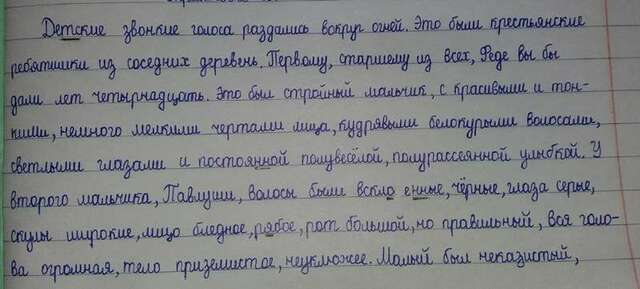 Детские звонкие голоса раздались вокруг огней. Это были крестьянские
ребятишки из соседних деревень. Первому, старшему из всех, Феде вы бы
дали лет четырнадцать. Это был стройный мальчик, с красивыми и тон-
кими, немного мелкими чертами лица, кудрявыми белокурыми волосами,
светлыми глазами и постоянной полувесёлой, полурассеянной улыбкой. У
второго мальчика, Павлуши, волосы были вскло енные, чёрные, глаза серые,
скулы широкие, лицо бледное, рябое, рот большой, но правильный, вся голо-
ва огромная, тело приземистое, неуклюжее. Малый был неказистый,